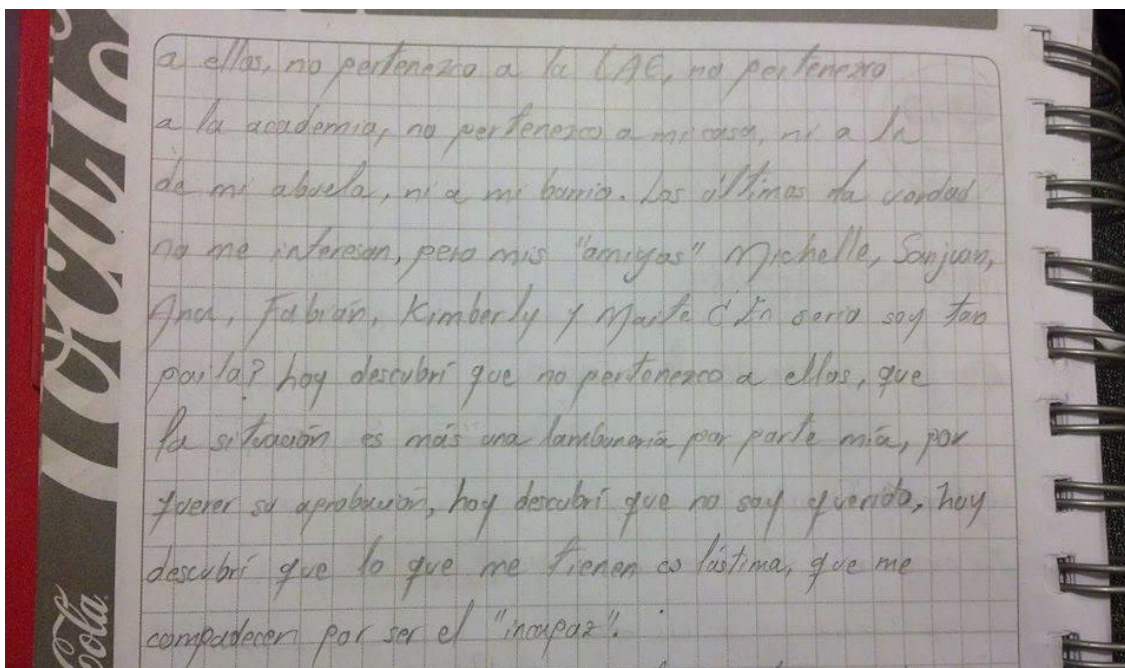 a ellos, no pertenezco a la LAE, no pertenezco
a la academia, no pertenezco a mi casa, ni a la
de mi abuela, ni a mi barrio. Los últimos la verdad
no me interesan, pero mis "amigos" Michelle, Sanjuan,
Ana, Fabián, Kimberly y Maite ¿En serio soy tan
paila? hoy descubrí que no pertenezco a ellos, que
la situación es más una lambonería por parte mía, por
querer su aprobación, hoy descubrí que no soy querido, hoy
descubrí que lo que me tienen es lástima, que me
compadecen por ser el "incapaz".
Cola